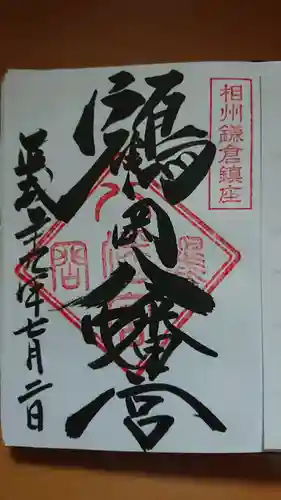 相州鎌倉鎮座
鶴岡八幡宮
平成二十七年七月二日